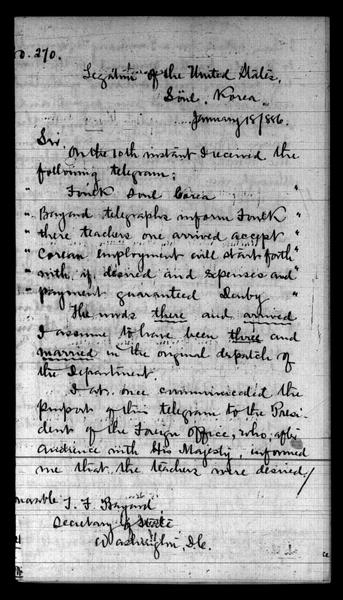 o. 270.
Legation of the United States,
Söul, Korea
January 18/886.
Sir:
On the 10th instant I received the
following telegram:
" Foulk Soul Corea "
" Bayard telegraphs inform Foulk "
" there teachers one arrived accept "
" Corean employment will start forth "
" with if desired and expenses and "
" payment guaranteed Denby "
The words there and arrived
I assume to have been three and
married in the original dispatch of
the Department.
I at once communicated the
purport of this telegram to the Presi-
dent of the Foreign Office, who, after
audience with His Majesty, informed
me that the teachers were desired/
norable T. F. Bayard
Secretary of State
Washington, D.C.